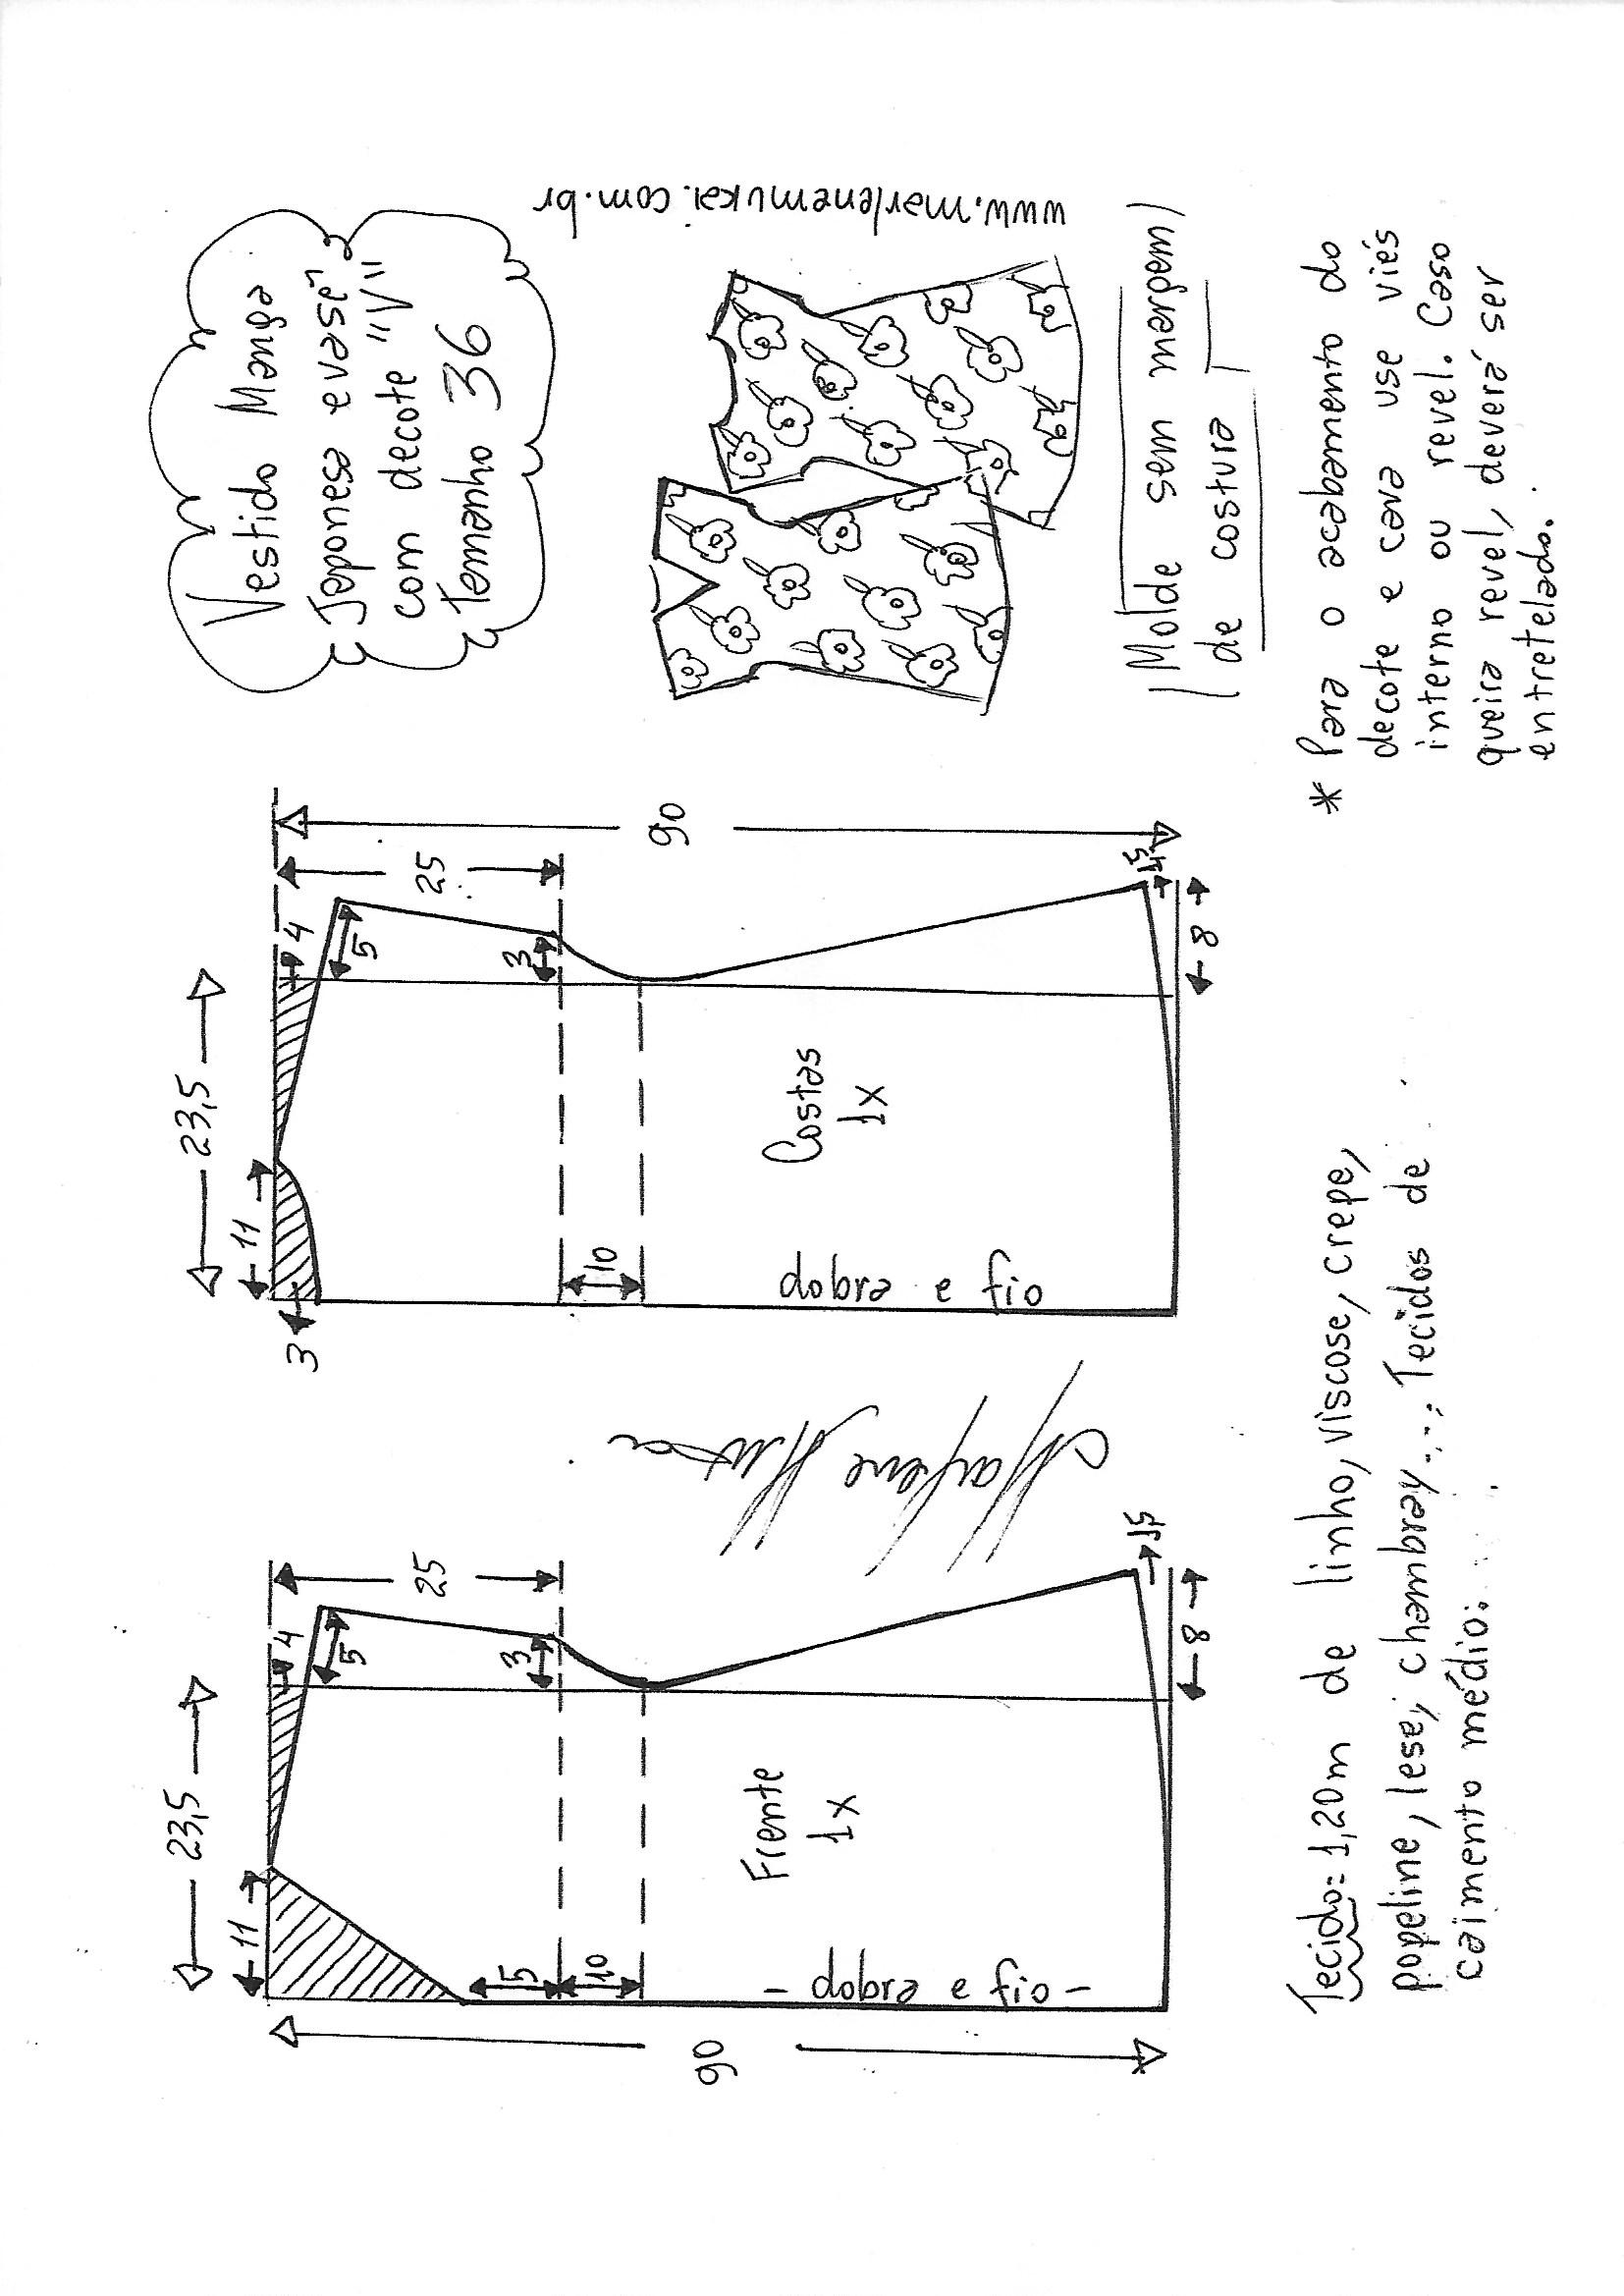 Vestido Manga
Japonesa evasê
com decote "V"
Tamanho 36
www.marlenemukai.com.br
Molde sem margem
de costura
* Para o acabamento do
decote e cava use viés
interno ou revel. Caso
queira revel, deverá ser
entretelado.
23,5
11
4
5
25
3
5
10
90
8
1,5
Frente
1x
- dobra e fio -
Marlene Mukai
23,5
11
3
4
5
25
3
10
90
8
1,5
Costas
1x
dobra e fio
Tecido: 1,20m de linho, viscose, crepe,
popeline, lese, chambray... Tecidos de
caimento médio.